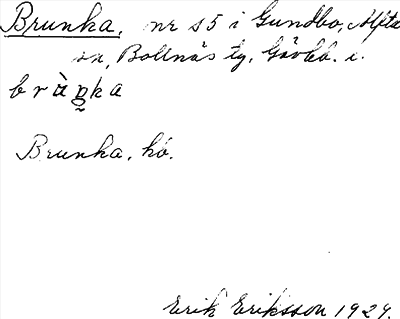 Brunka, nr 15 i Gundbo, Alfta
sn, Bollnäs tg, Gävlb. l.
bràŋka
Brunka, hö.
Erik Eriksson 1929.